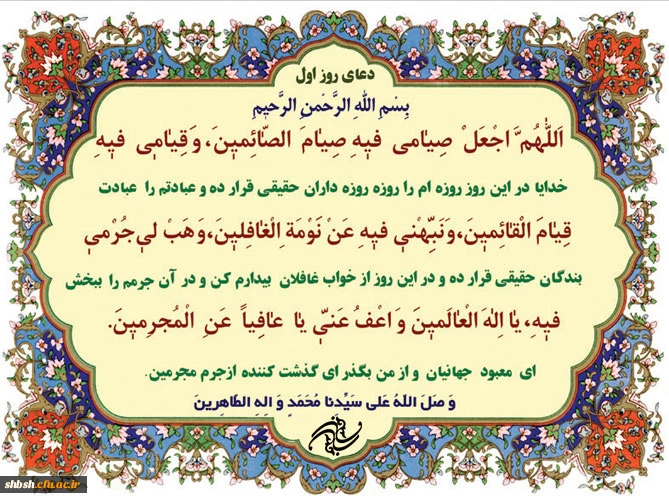 دعای روز اول
بِسْمِ اللهِ الرَّحْمنِ الرَّحیمِ
اَللّهُمَّ اجْعَلْ صِیٰامی فیٖهِ صِیٰامَ الصّٰائِمیٖنَ، وَ قِیٰامیٖ فیٖهِ
خدایا در این روز روزه ام را روزه روزه داران حقیقی قرار ده و عبادتم را عبادت
قِیٰامَ الْقٰائِمیٖنَ، وَنَبِّهْنیٖ فیٖهِ عَنْ نَوْمَةِ الْغٰافِلیٖنَ، وَهَبْ لیٖ جُرْمیٖ
بندگان حقیقی قرار ده و در این روز از خواب غافلان بیدارم کن و در آن جرمم را ببخش
فیٖهِ، یٰا اِلٰهَ الْعٰالَمیٖنَ وَ اعْفُ عَنّیٖ یٰا عٰافِیاً عَنِ الْمُجرِمیٖنَ.
ای معبود جهانیان و از من بگذر ای گذشت کننده ازجرم مجرمین.
وَ صَلَ اللهُ عَلی سَیِّدِنا مُحَمَدٍ وَ الِهِ الطّاهِرینَ
shbsh.cfu.ac.ir